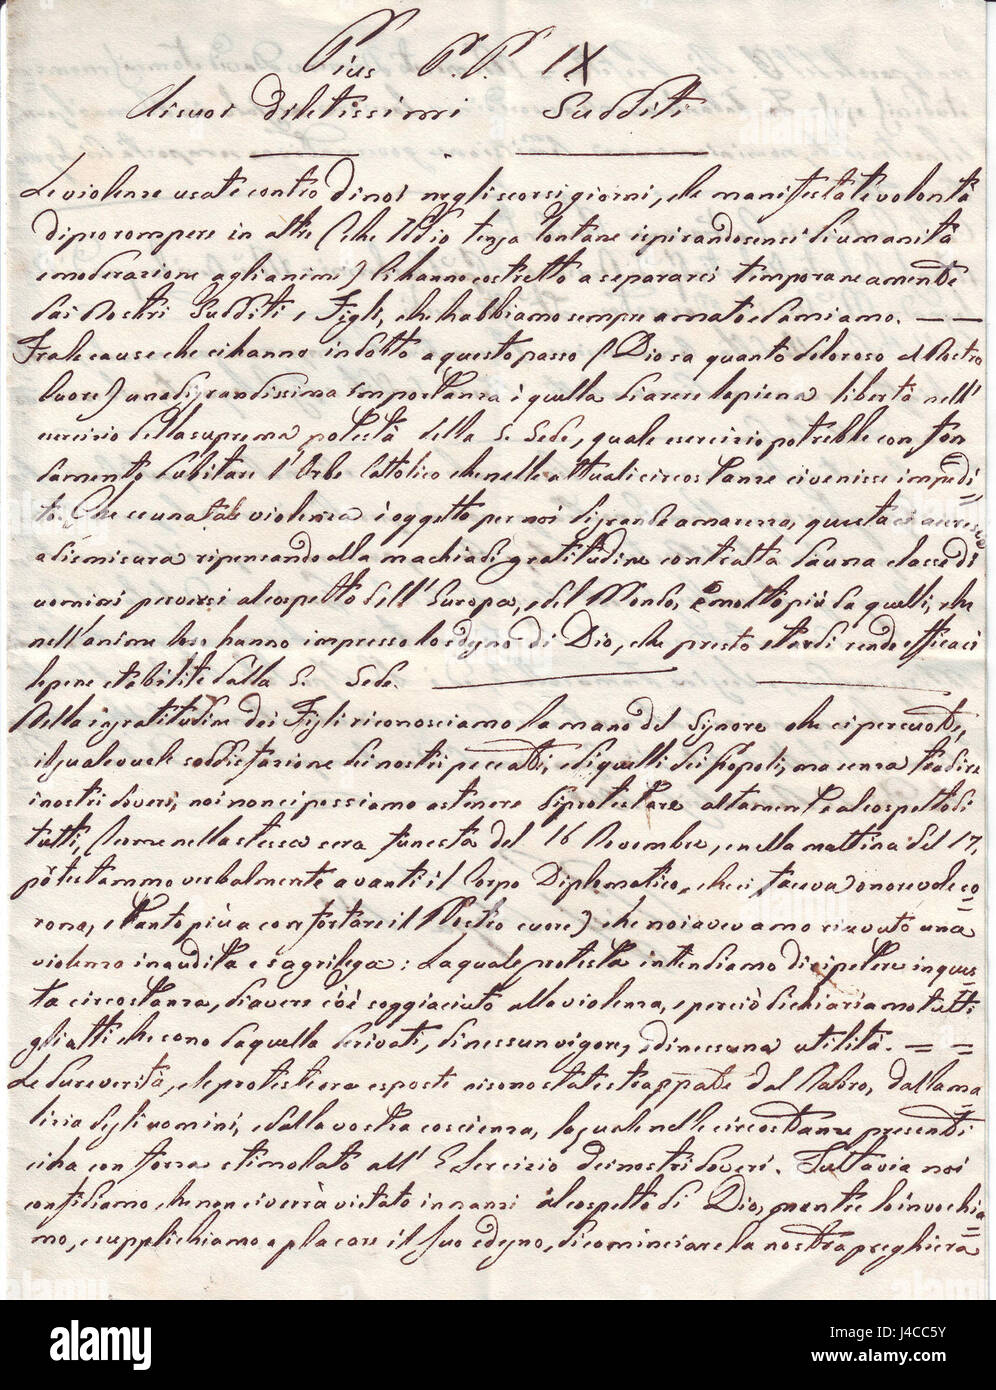 Pius P.P. IX
Ai suoi diletissimi Sudditi
Le violenze usate contro di noi negli scorsi giorni, e le manifestate volontà
di prorompere in altre (che Iddio tenga lontane ispirando sensi di umanità
e moderazione agli animi) ci hanno costretto a separarci temporaneamente
dai Nostri Sudditi e Figli, che habbiamo sempre amato ed amiamo.
Fra le cause che ci hanno indotto a questo passo (Dio sa quanto doloroso al Nostro
Cuore) una di grandissima importanza è quella di avere la piena libertà nell'
esercizio della suprema potestà della S. Sede, quale esercizio potrebbe con fon
damento dubitare l'Orbe Cattolico che nelle attuali circostanze ci venisse impedi
to. Che se una tale violenza è oggetto per noi di grande amarezza, questa ci accresce
a dismisura ripensando alla macchia di gratitudine contratta da una classe di
uomini perversi al cospetto dell'Europa, e del Mondo, e molto più da quelli, che
nell'anime loro hanno impresso lo sdegno di Dio, che presto o tardi rende efficaci
le pene stabilite dalla S. Sede.
Nella ingratitudine dei Figli riconosciamo la mano del Signore che ci percuote,
il quale vuole soddisfazione dei nostri peccati, e di quelli dei Popoli, ma senza tradire
i nostri doveri, noi non ci possiamo astenere di protestare altamente al cospetto di
tutti, (come nella stessa sera funesta del 16 Novembre, e nella mattina del 17,
protestammo verbalmente avanti il Corpo Diplomatico, che ci faceva onorevole co
rona, e tanto più a confortare il Nostro cuore) che noi avevamo ricevuto una
violenza inaudita e sagrilega: La quale protesta intendiamo di ripetere in ques
ta circostanza, di avere cioè soggiaciuto alla violenza, e perciò dichiariamo tutti
gli atti che sono da quella derivati, di nessun vigore, e di nessuna utilità.
Le dure verità, e le proteste ora esposte ci sono state strappate dal labro, dalla ma
lizia degli uomini, e dalla nostra coscienza, la quale nelle circostanze presenti
ci ha con forza stimolato all'Esercizio dei nostri doveri. Tuttavia noi
confidiamo che non ci verrà vietato innanzi al cospetto di Dio, mentre lo invochia
mo, e supplichiamo a placare il suo sdegno, di cominciare la nostra preghiera
alamy
Image ID: J4CC5Y
www.alamy.com